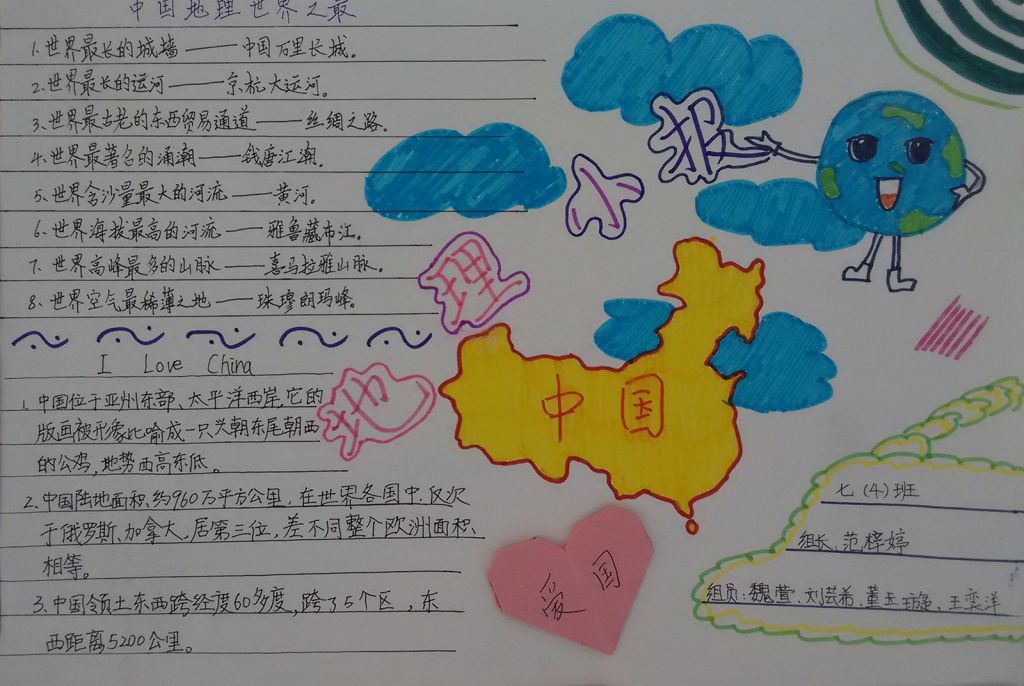 中国地理世界之最
1.世界最长的城墙——中国万里长城。
2.世界最长的运河——京杭大运河。
3.世界最古老的东西贸易通道——丝绸之路。
4.世界最著名的涌潮——钱唐江潮。
5.世界含沙量最大的河流——黄河。
6.世界海拔最高的河流——雅鲁藏布江。
7.世界高峰最多的山脉——喜马拉雅山脉。
8.世界空气最稀薄之地——珠穆朗玛峰。
I Love China
1.中国位于亚州东部、太平洋西岸,它的
版画被形象比喻成一只头朝东尾朝西
的公鸡,地势西高东低。
2.中国陆地面积约960万平方公里,在世界各国中,仅次
于俄罗斯、加拿大,居第三位,差不同整个欧洲面积
相等。
3.中国领土东西跨经度60多度,跨了5个区,东
西距离5200公里。
地理小报
中国
爱国
七(4)班
组长:范梓婷
组员:魏萱、刘芸希、董玉、王奕洋